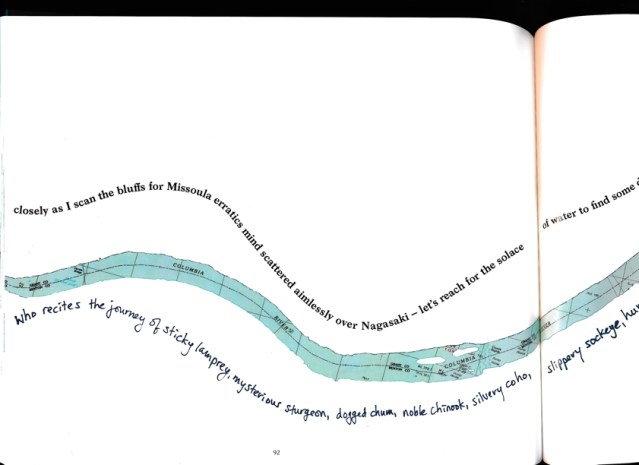 closely as I scan the bluffs for Missoula erratics mind scattered aimlessly over Nagasaki – let's reach for the solace
of water to find some
COLUMBIA
RIVER
COLUMBIA
who recites the journey of sticky lamprey, mysterious sturgeon, dogged chum, noble chinook, silvery coho,
slippery sockeye,
92